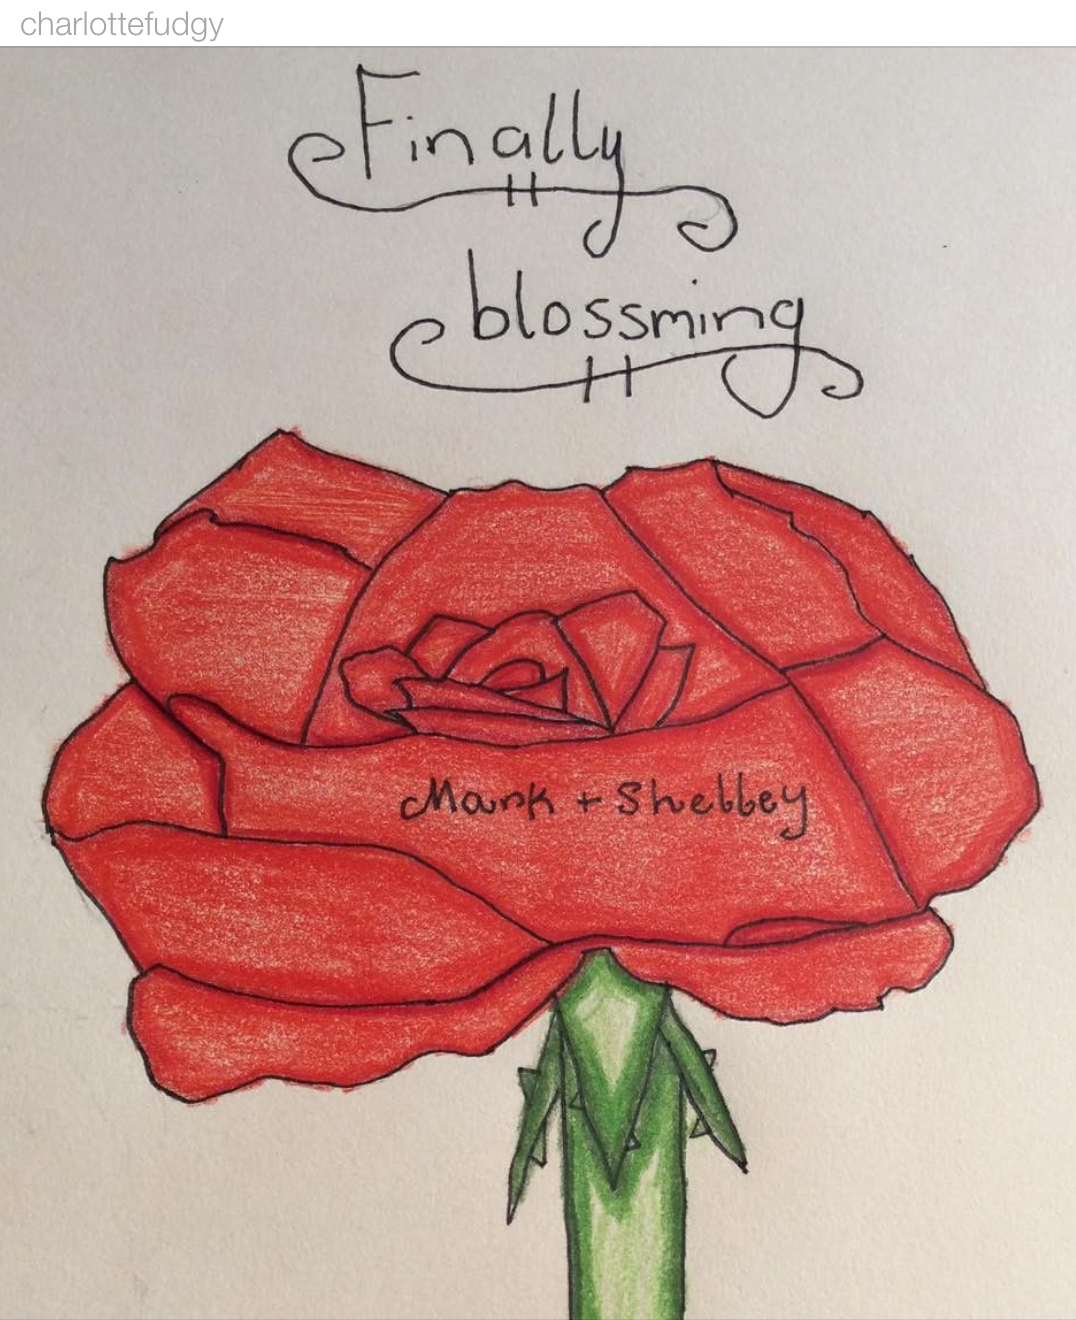 charlottefudgy
Finally
blossming
Mark + Shelley